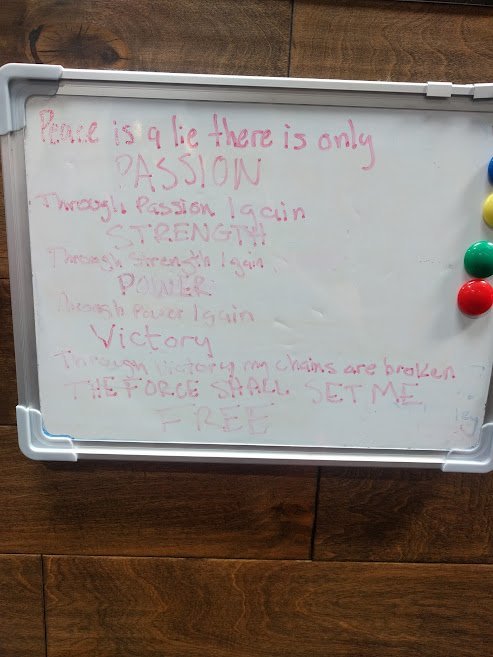 Peace is a lie there is only
PASSION
Through Passion I gain
STRENGTH
Through Strength I gain
POWER
Through Power I gain
Victory
Through Victory my chains are broken
THE FORCE SHALL SET ME
FREE